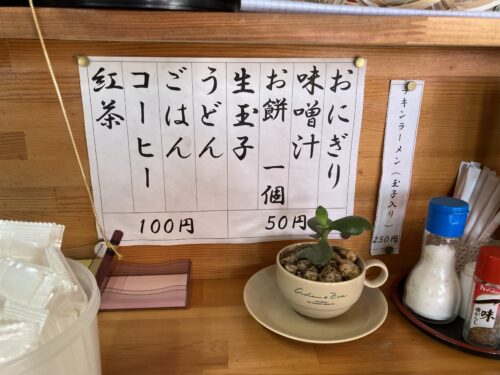 おにぎり
味噌汁
お餅 一個
生玉子
うどん
ごはん
コーヒー
紅茶
50円
100円
キンラーメン(玉子入り)
250円
一味